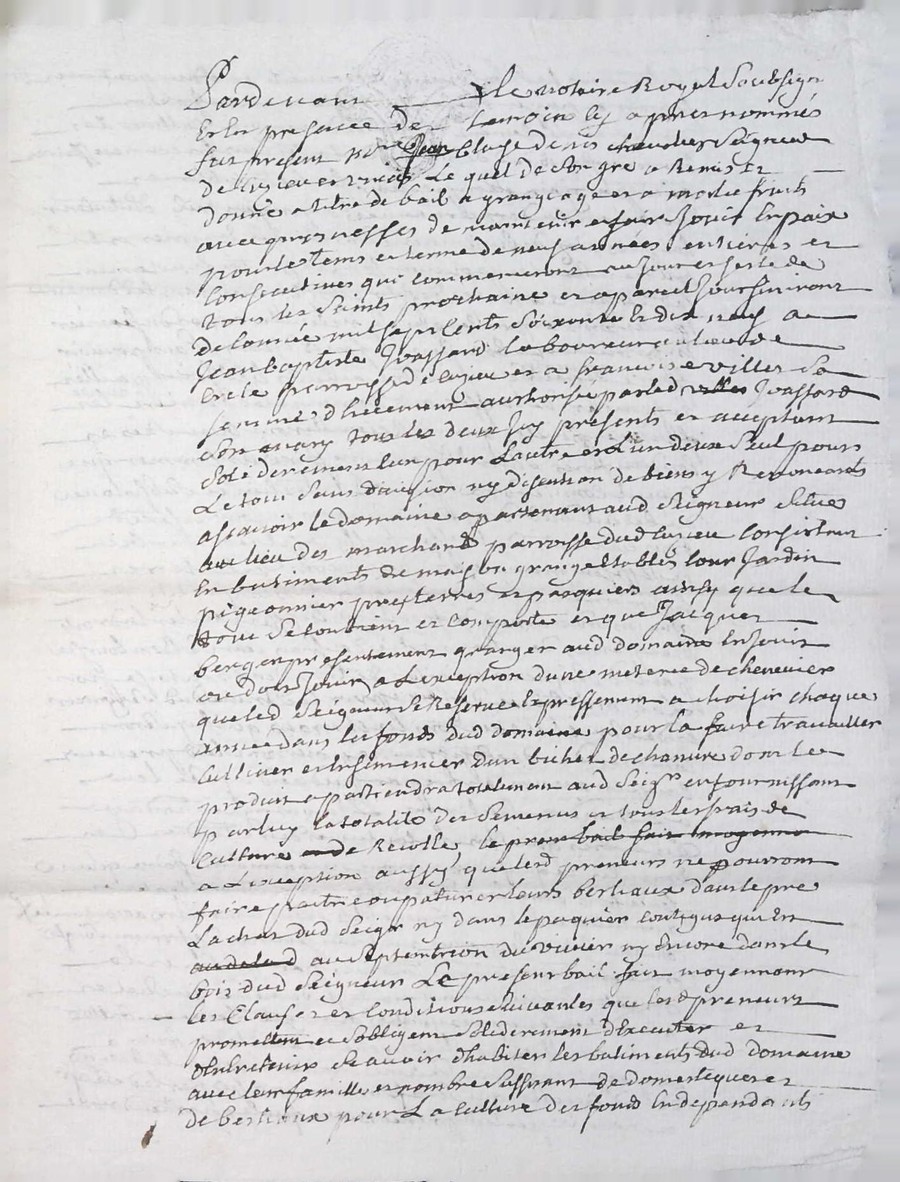 Pardevant le notaire Royal Soubsigné
Et En presence des temoins cy apres nommés
fut present Jean Claude de ris chevalier Seigneur
de Luzieu et Lequel de Son gré a Remis et
donné a titre de bail a grangeage et a moitié fruits
avec promesses de maintenir et faire Jouir En paix
pour le tems et terme de neuf années entieres et
Consecutives qui commenceront au Jour et feste de
tous les Saints prochaine et a pareil Jour finiront
de l'année mil sept Cents Soixante Et dix neuf a
Jean baptiste Jvassard laboureur au lieu de
Et a francoise villes Sa
femme d'hecement authorisée par led villes Jvassard
Son mary tous les deux Icy presents et acceptant
Solidairement l'un pour L'autre et L'un deux Seul pour
Le tout Sans division ny discution de biens y Renonceants
ascavoir le domaine appartenant aud Seigneur Scitué
au lieu des marchand parroisse dud Luzieu Consistant
En batiments de maison grange Etables Cour Jardin
pigeonnier pres terres et pasquiers ainsy que le
tout Se Contient et Comporte et que Jacques
berger presentement granger aud domaine En Jouit
ou doit Jouir a L'exception d'une meterée de chenevier
que led Seigneur Se Reserve Expressement a choisir chaque
année dans les fonds dud domaine pour la faire travailler
Cultiver et Ensemencer d'un bichet de chanvre dont le
produit appartiendra totalement aud Seigr en fournissant
par luy la totalité des Semences et tous les frais de
Culture et de Recolte le present bail fait moyennant
a L'exception aussy que lesd preneurs ne pourront
faire paitre ou paturer leurs bestiaux dans le pre
Lachat dud Seigr ny dans le paquier contigus qui Est
au dela d au Septemtrion du vivier ny Encore dans le
bois dud Seigneur Le present bail fait moyennant
les Clauses et Conditions Suivantes que lesd preneurs
promettent et Sobligent Solidairement d'Executer et
Entretenir Scavoir d'habiter les batiments dud domaine
avec leur famille et nombre Suffisant de domestiques et
de bestiaux pour La Culture des fonds En dependants